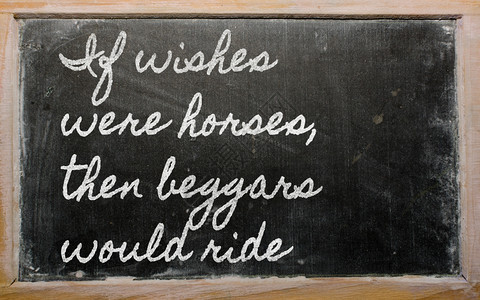 If wishes
were horses,
then beggars
would ride